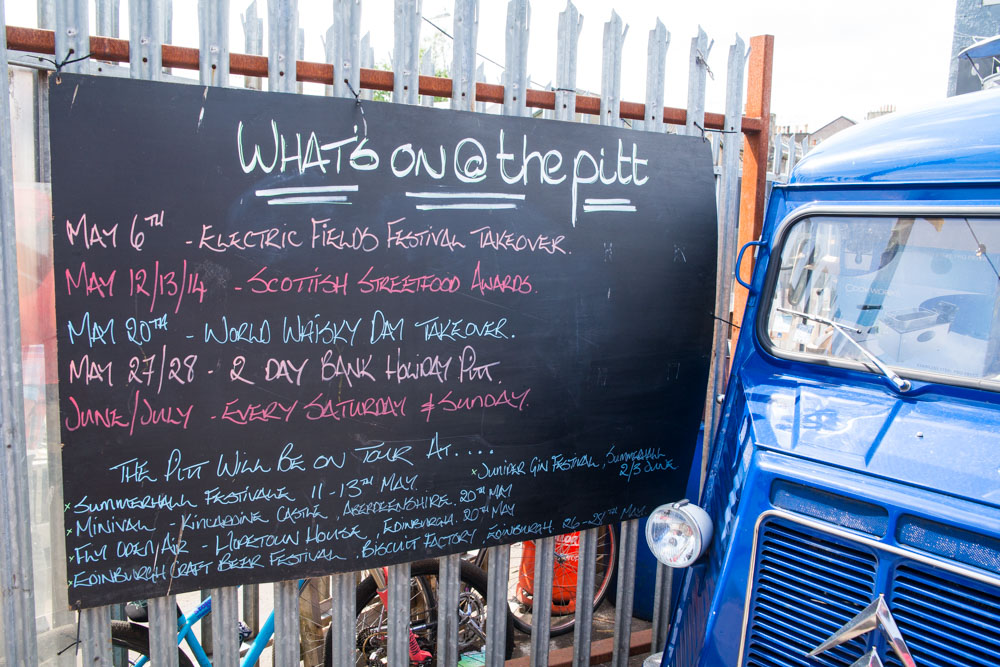 WHAT'S ON @ the pitt
MAY 6TH - ELECTRIC FIELDS FESTIVAL TAKEOVER.
MAY 12/13/14 - SCOTTISH STREETFOOD AWARDS.
MAY 20TH - WORLD WHISKY DAY TAKEOVER.
MAY 27/28 - 2 DAY BANK HOLIDAY PITT.
JUNE/JULY - EVERY SATURDAY & SUNDAY.
THE PITT WILL BE ON TOUR AT....
x SUMMERHALL FESTIVALE 11-13TH MAY
x MINIVAL - KINCARDINE CASTLE, ABERDEENSHIRE 20TH MAY
x FLY OPEN/AIR - HOPETOUN HOUSE, EDINBURGH. 20TH MAY
x EDINBURGH CRAFT BEER FESTIVAL. BISCUIT FACTORY EDINBURGH. 26-28TH MAY
x JUNIPER GIN FESTIVAL, SUMMERHALL
2/3 JUNE